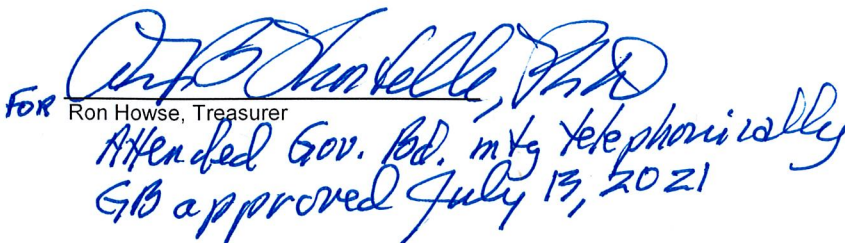 PhD
FOR Ron Howse, Treasurer
Attended Gov. Bd. mtg telephonically
GB approved July 13, 2021